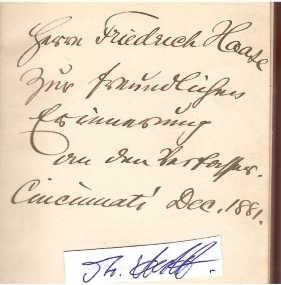 Herrn Friedrich Haase
Zur freundlichen
Erinnerung
an den Verfasser.
Cincinnati Dec. 1881.
Th.